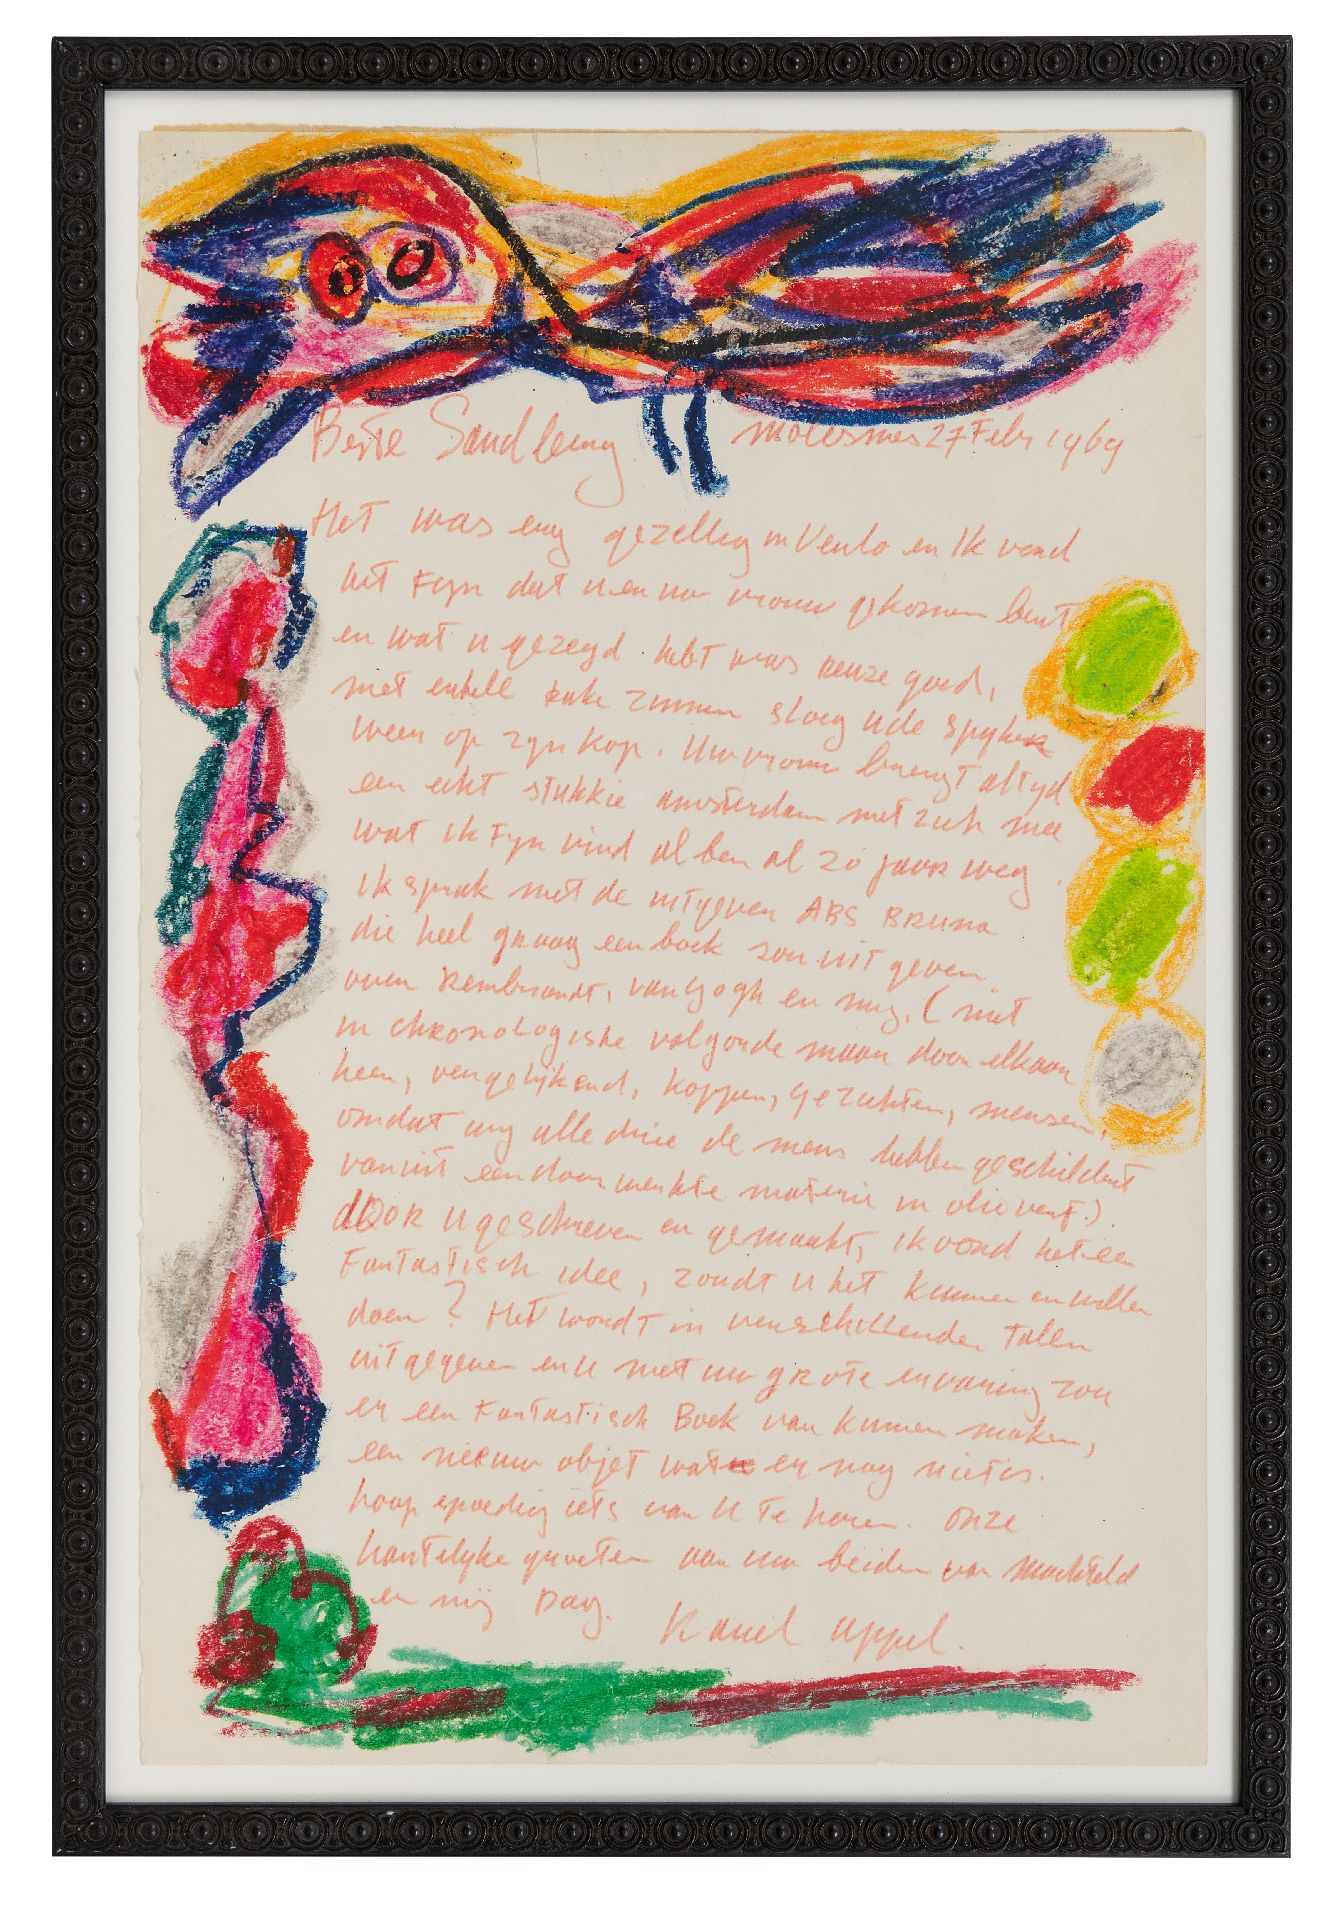 Beste Sandberg. Molesmes 27 Febr 1969
Het was erg gezellig in Venlo en ik vond
het Fijn dat u en uw vrouw gekomen bent
en wat u gezegd hebt was reuze goed,
met enkele rake zinnen sloeg u de spijker
weer op zijn kop. Uw vrouw brengt altijd
een echt stukkie amsterdam met zich mee
wat ik Fijn vind al ben al 20 jaar weg.
Ik sprak met de uitgever ABS BRUNA
die heel graag een boek zou uit geven
over Rembrandt, van Gogh en mij, (niet
in chronologische volgorde maar door elkaar
heen, vergelijkend, koppen, gezichten, mensen,
omdat wij alle drie de mens hebben geschilderd
vanuit een doorwerkte materie in olieverf.)
dOOR u geschreven en gemaakt, ik vond het een
Fantastisch idee, zoudt u het kunnen en willen
doen? Het wordt in verschillende talen
uitgegeven en u met uw grote ervaring zou
er een Fantastisch Boek van kunnen maken,
een nieuw objet wat er nog niet is.
hoop spoedig iets van U te horen. Onze
hartelijke groeten aan uw beiden van Machteld
en mij Dag. Karel Appel.